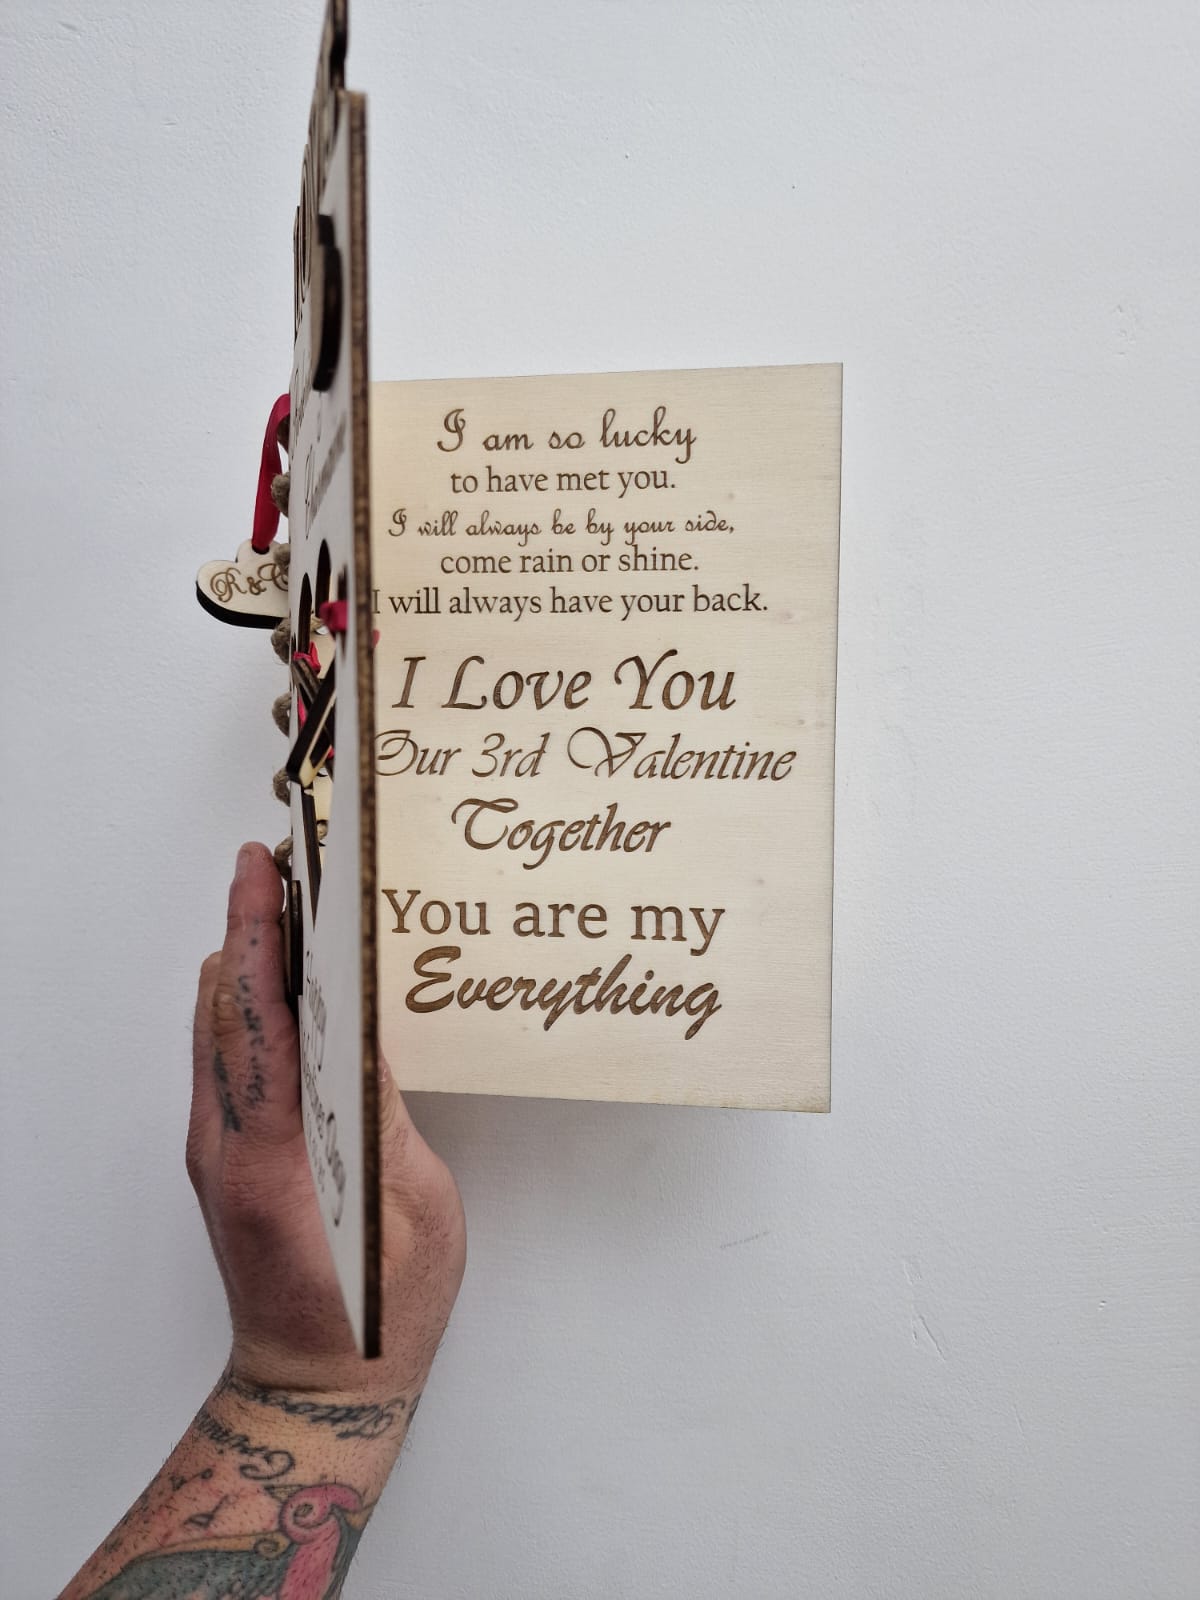 I am so lucky
to have met you.
I will always be by your side,
come rain or shine.
I will always have your back.
I Love You
Our 3rd Valentine
Together
You are my
Everything
R &